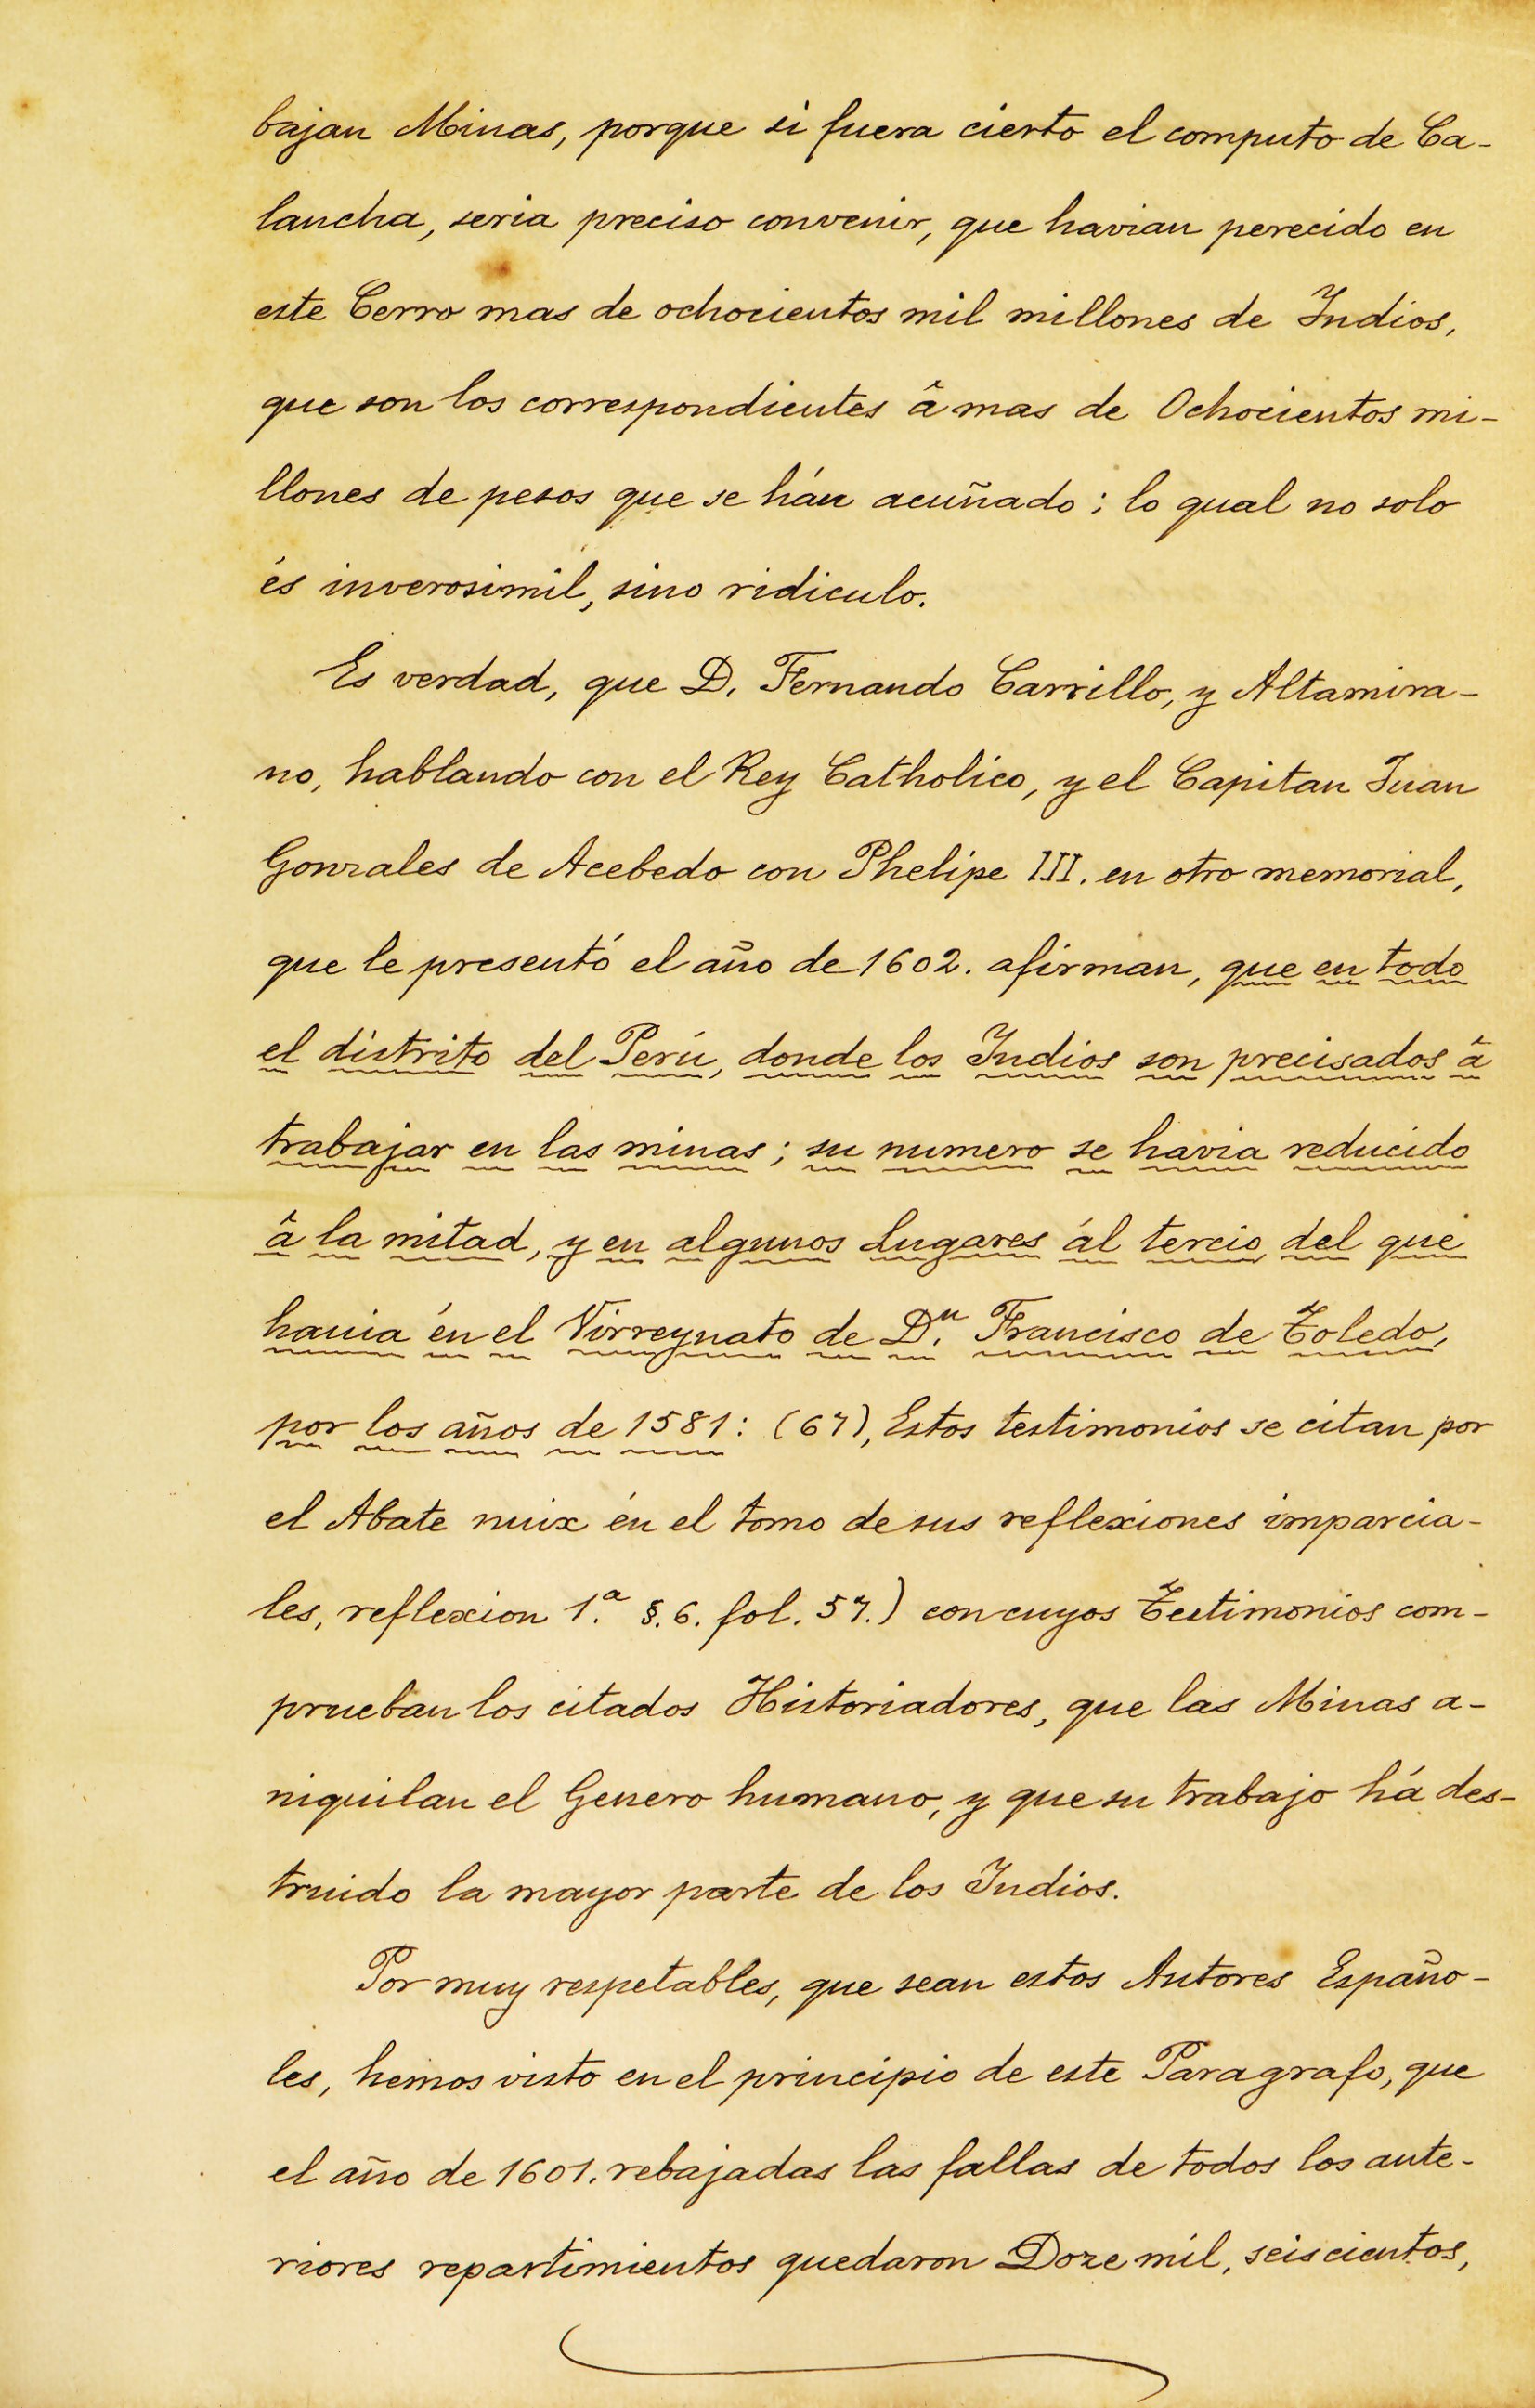 bajan Minas, porque si fuera cierto el computo de Ca-
lancha, seria preciso convenir, que havian perecido en
este Cerro mas de ochocientos mil millones de Indios,
que son los correspondientes â mas de Ochocientos mi-
llones de pesos que se hán acuñado; lo qual no solo
és inverosimil, sino ridiculo.
Es verdad, que D. Fernando Carrillo, y Altamira-
no, hablando con el Rey Catholico, y el Capitan Juan
Gonzales de Acebedo con Phelipe III. en otro memorial,
que le presentó el año de 1602. afirman, que en todo
el distrito del Perú, donde los Indios son precisados â
trabajar en las minas; su numero se havia reducido
â la mitad, y en algunos Lugares ál tercio, del que
hauia én el Virreynato de Dn. Francisco de Toledo,
por los años de 1581: (67), Estos testimonios se citan por
el Abate nuix én el tomo de sus reflexiones imparcia-
les, reflexion 1.a §. 6. fol. 57.) con cuyos Testimonios com-
prueban los citados Historiadores, que las Minas a-
niquilan el Genero humano, y que su trabajo há des-
truido la mayor parte de los Indios.
Por muy respetables, que sean estos Autores Españo-
les, hemos visto en el principio de este Paragrafo, que
el año de 1601. rebajadas las fallas de todos los ante-
riores repartimientos quedaron Doze mil, seiscientos,